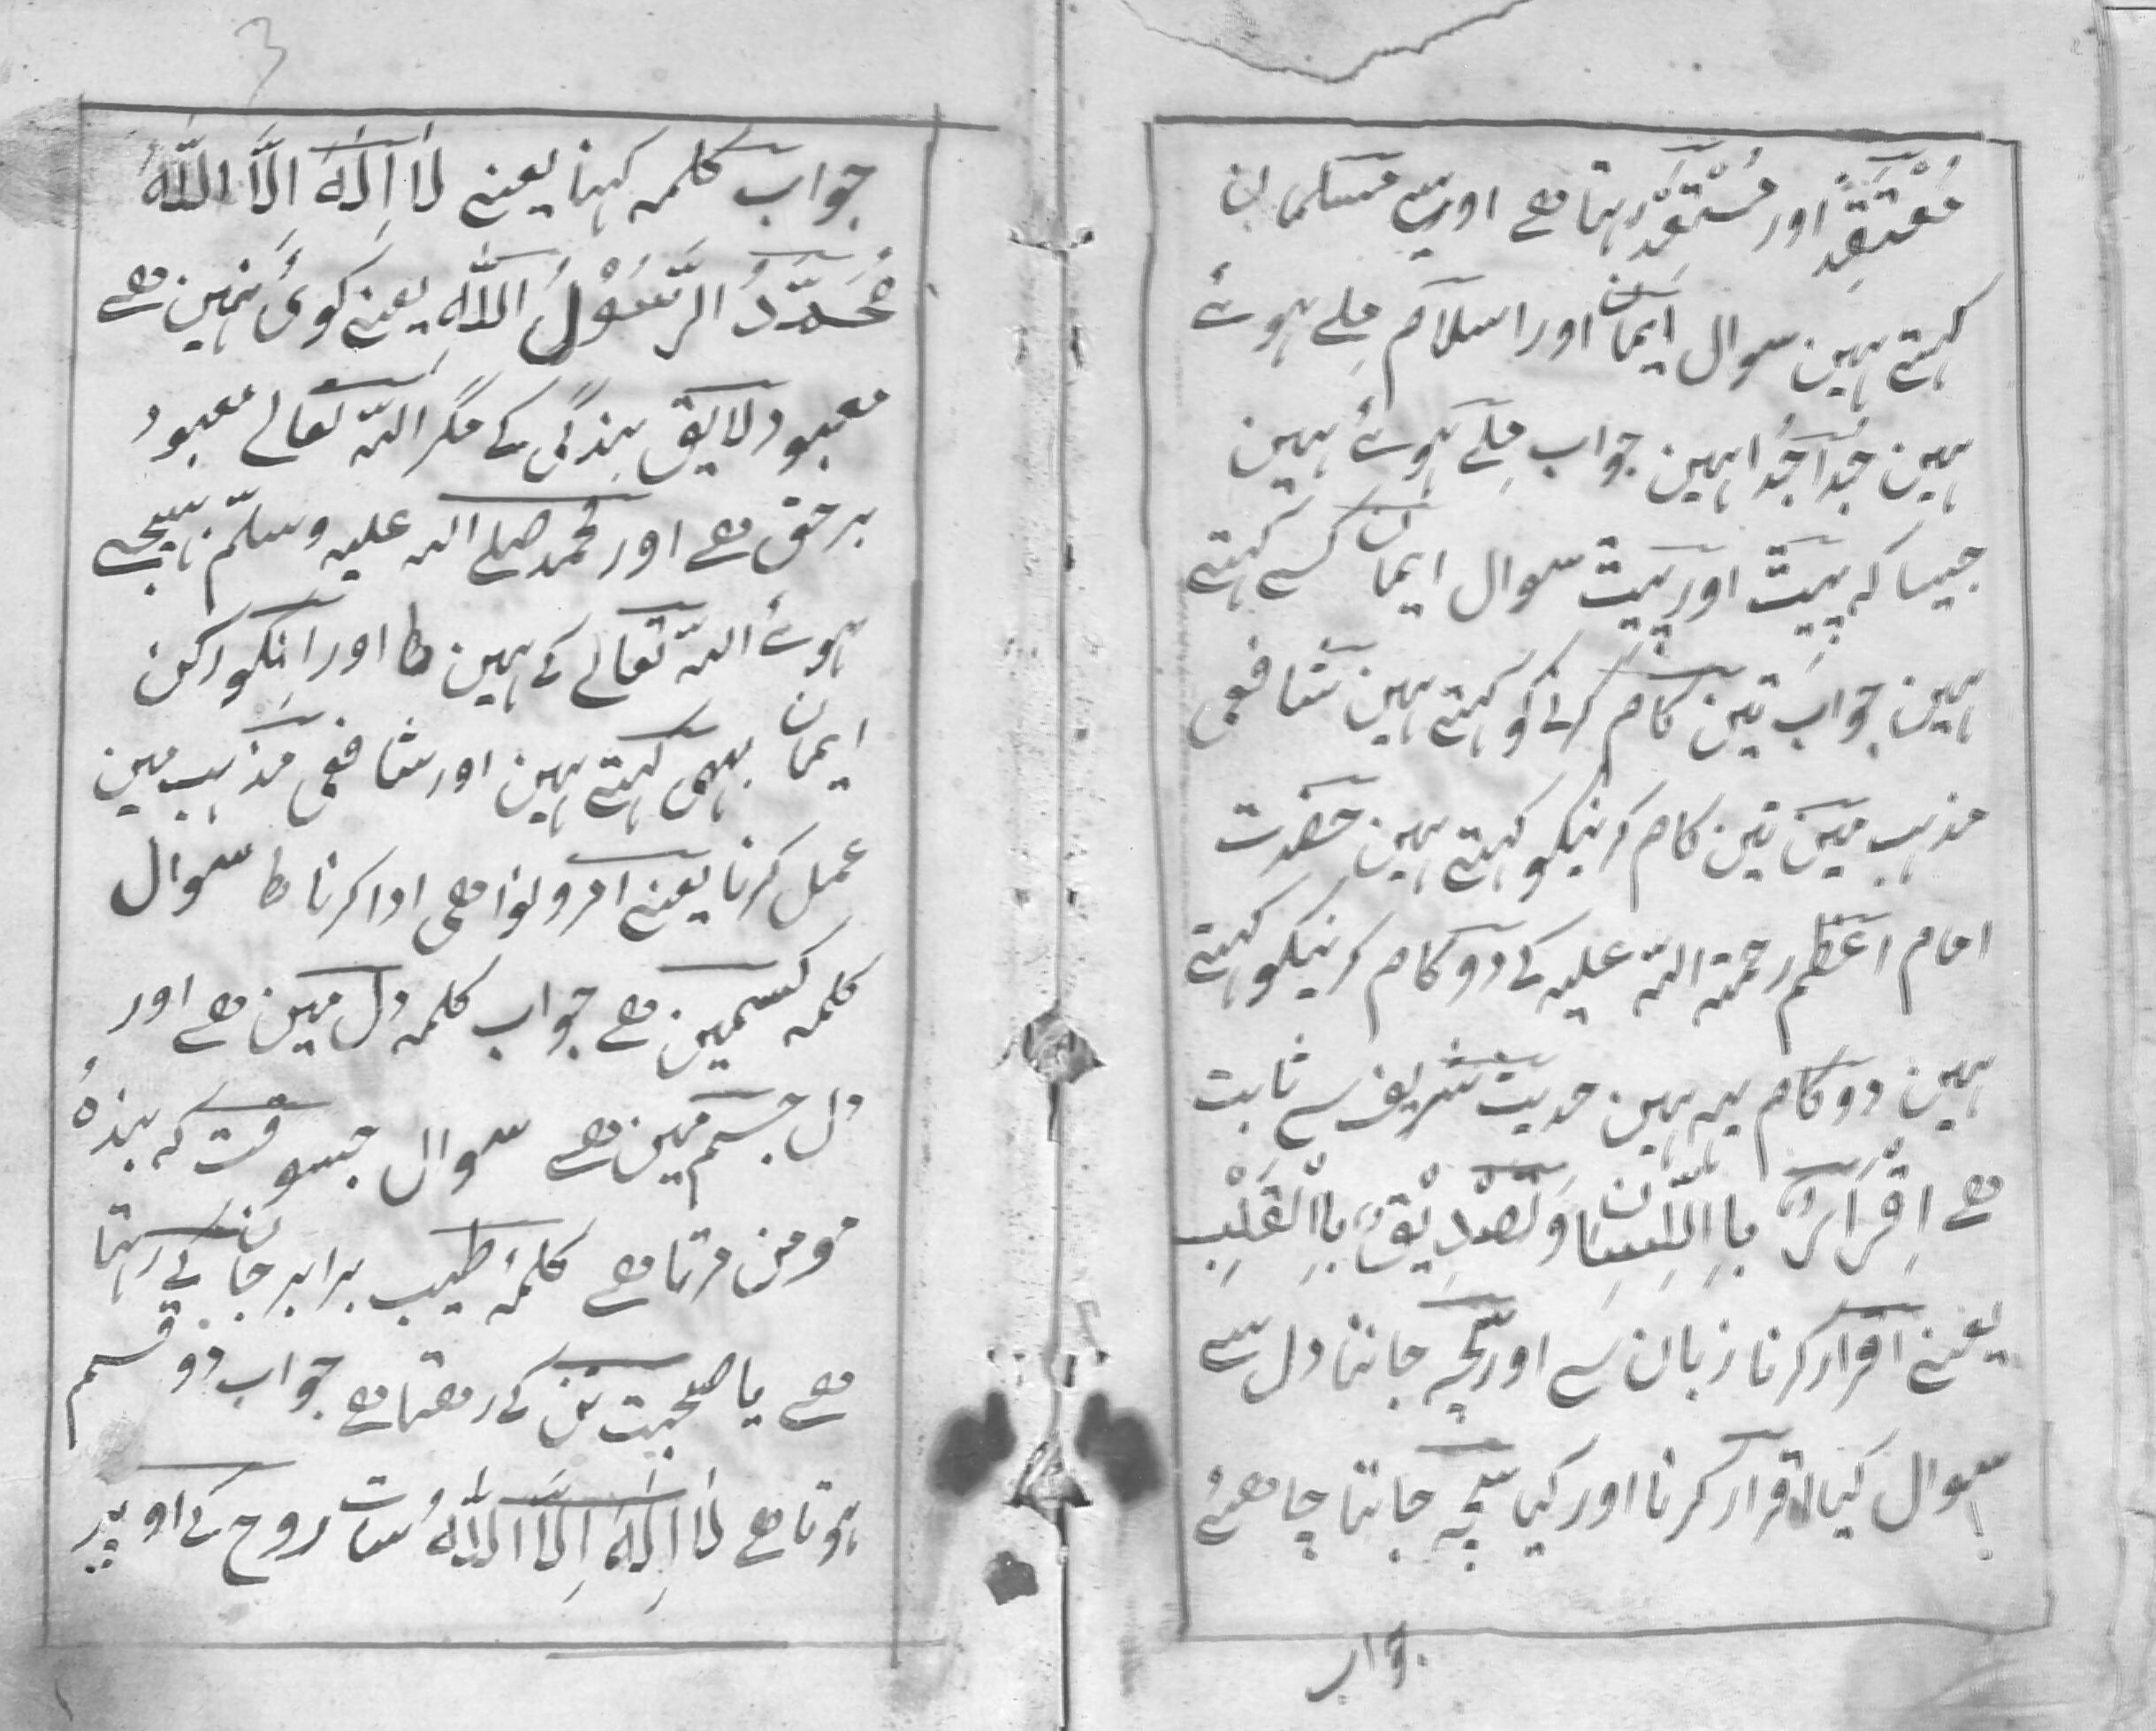 مُعْتَقِدْ اور مُسْتَعِدْ رہتا ھے اور مسلمان
کہتے ہین سوال ایمان اور اسلام مِلے ہوئے
ہین جُدا جُدا ہین جواب مِلے ہوئے ہین
جیسا کہ پیٹ اور پیٹ سوال ایمان کسے کہتے
ہین جواب تین کام کرنے کو کہتے ہین شافعی
مذہب مین تین کام کرنیکو کہتے ہین حضرت
امام اعظم رحمتہ اللہ علیہ کے دو کام کرنیکو کہتے
ہین دو کام یہہ ہین حدیث شریف سے ثابت
ھے اِقْرَارٌ بِاالِّلسَانِ وَتَصْدِیْقٌ بِاالْقَلْبِ
یعنے اقرار کرنا زبان سے اور سچہ جاننا دل سے
سوال کیا اقرار کرنا اور کیا سچہ جاننا چاھئے
جواب
3
جواب کلمہ کہنا یعنے لَا اِلٰهَ اِلَّا اللّٰهُ
مُحَمَّدُ الرَّسُوْلُ اللّٰهِ یعنے کوئی نہین ھے
معبود لایق بندگی کے مگر اللہ تعالے معبود
برحق ھے اور محمد صلے اللہ علیہ وسلّم بھیجے
ہوئے اللہ تعالے کے ہین ط اور اِنکو رکن
ایمان بہی کہتے ہین اور شافعی مذہب مین
عمل کرنا یعنے امر و نواھی ادا کرنا ط سوال
کلمہ کسمین ھے جواب کلمہ دل مین ھے اور
دل جسم مین ھے سوال جسوقت کہ بندۂ
مومن مرتا ھے کلمۂ طیب برابر جان کے رہتا
ھے یا صحبت تن کے رھتا ھے جواب دو قسم
ہوتا ھے لَا اِلٰهَ اِلَّا اللّٰهُ سات روح کے اوپر